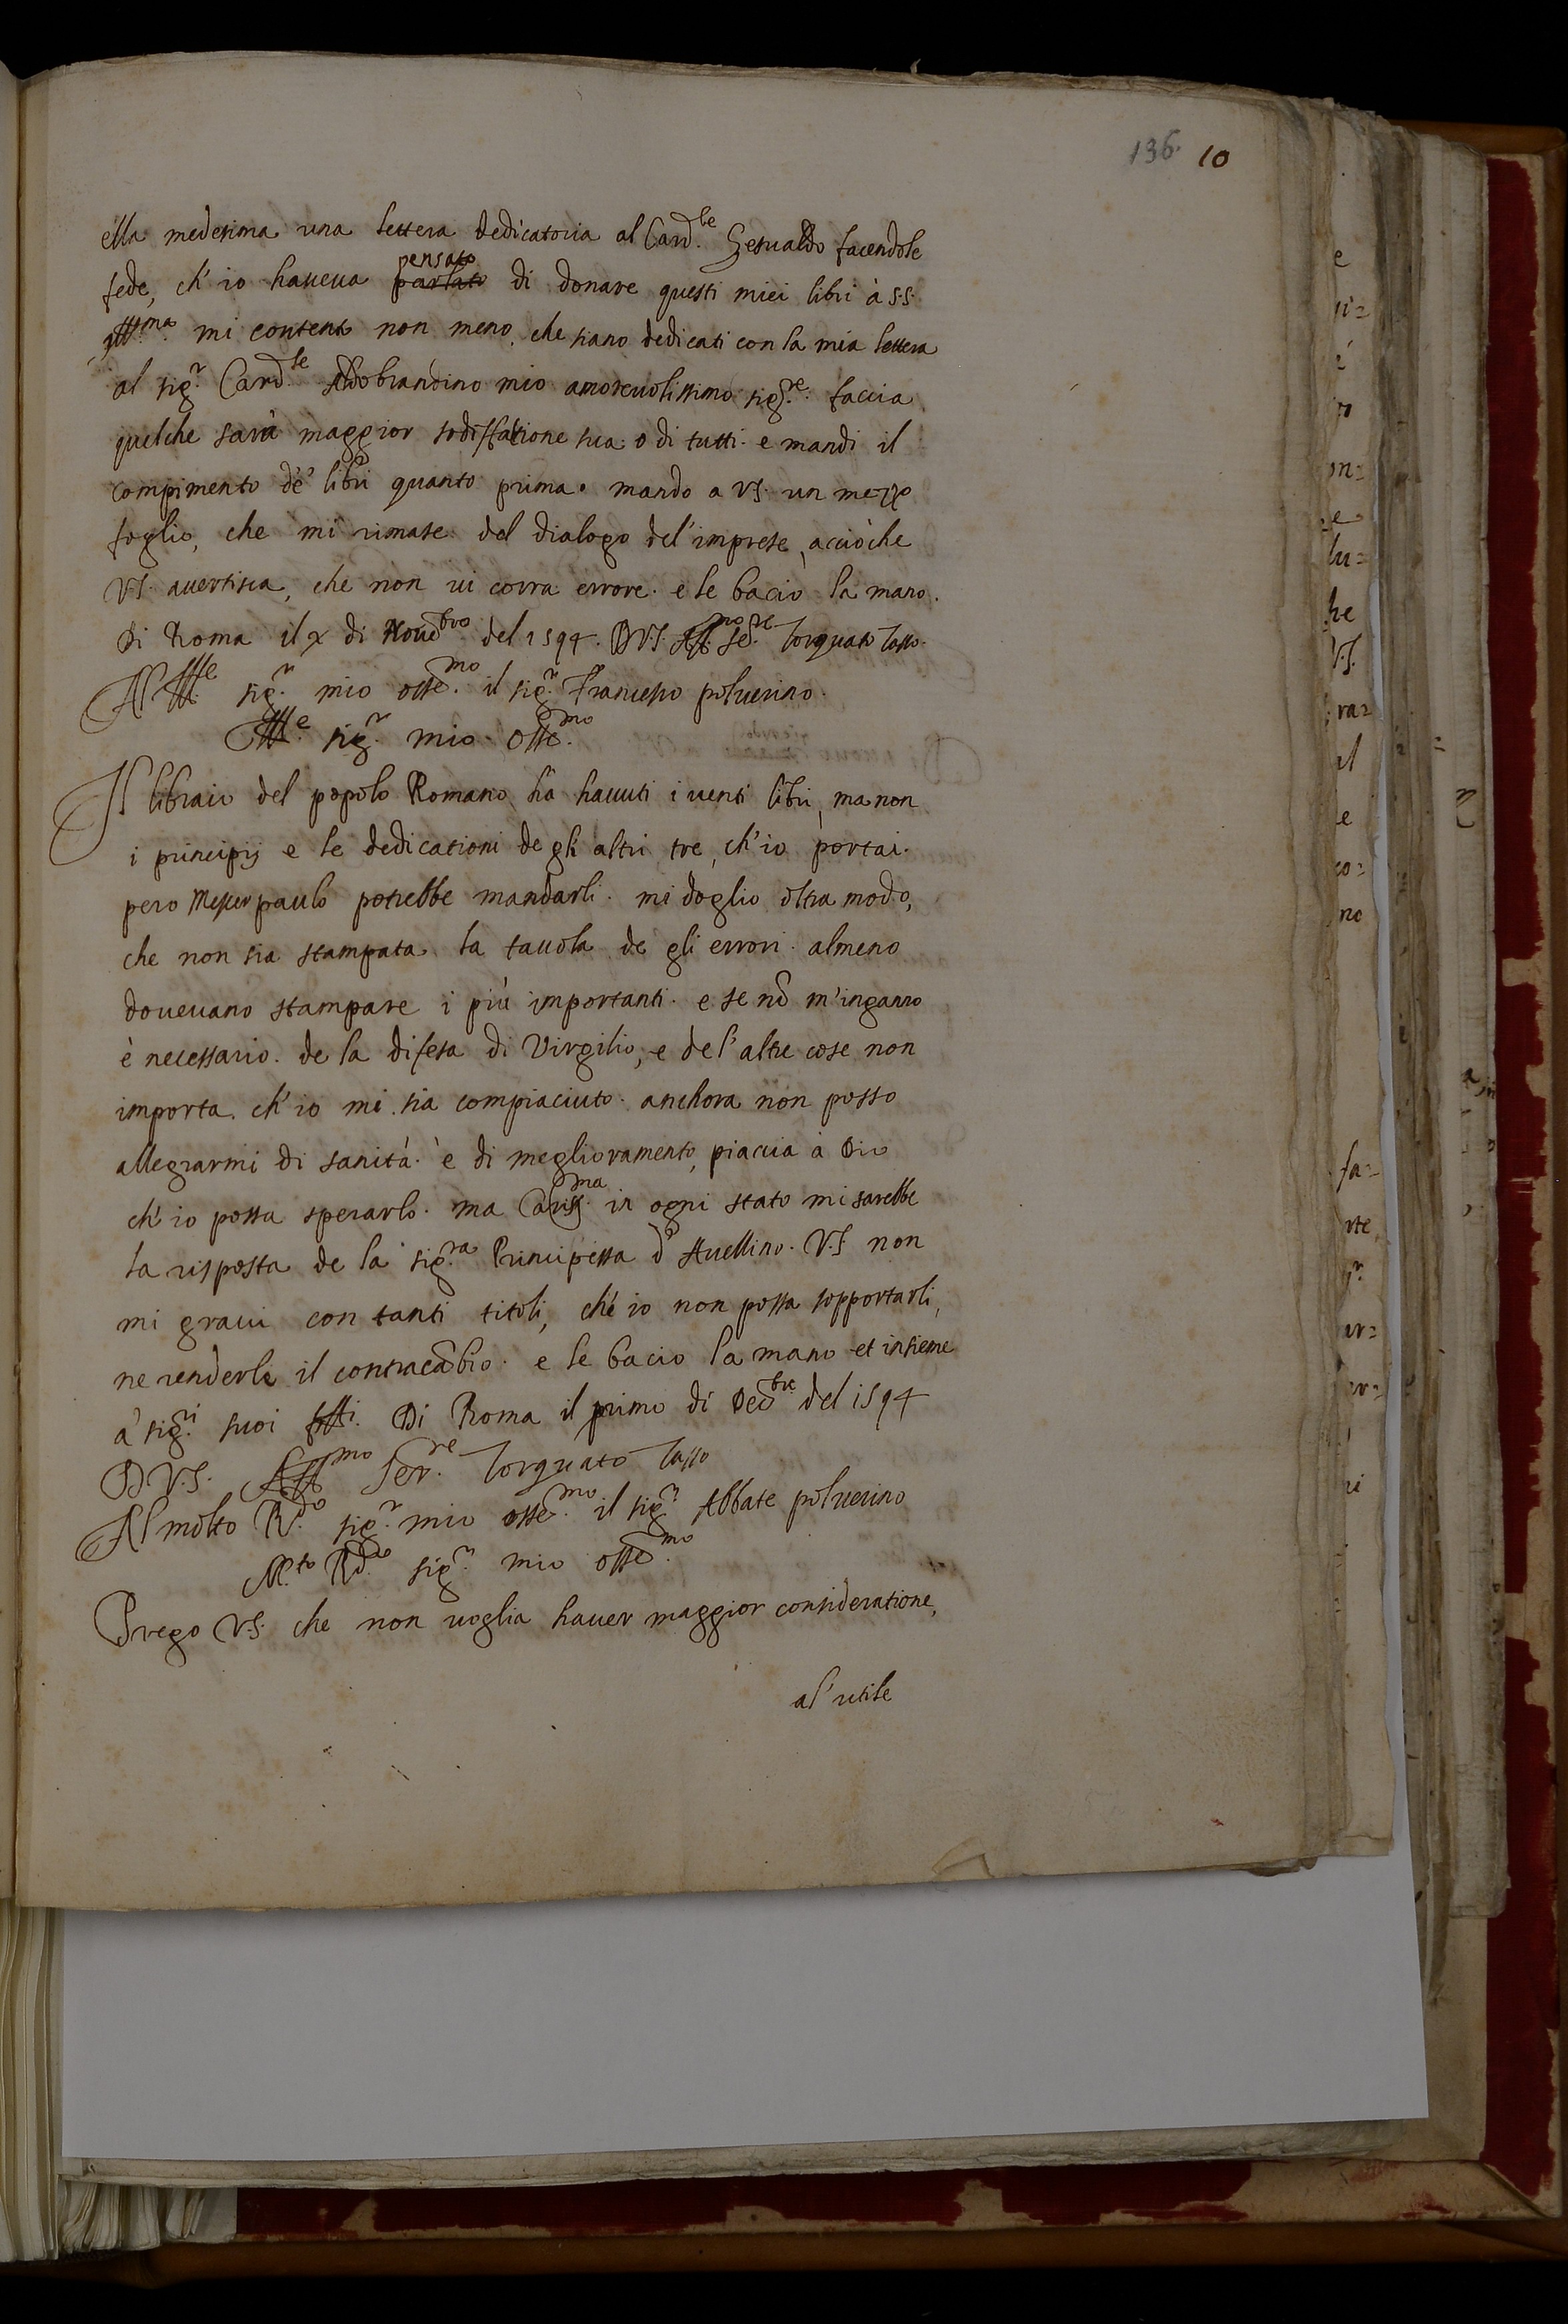 136. 10
ella medesima una lettera dedicatoria al Card.le Gesualdo facendole
fede, ch'io haveua pensato parlato di donare questi miei libri à S.S.
Ill.ma mi contento non meno, che siano dedicati con la mia lettera
al sig.r Card.le Aldobrandino mio amorevolissimo sig.re faccia
quelche sarà maggior sodisfatione sua o di tutti. e mandi il
compimento de' libri quanto prima. mando a V.S. un mezzo
foglio, che mi rimase del dialogo del'imprese, acciòche
V.S. avertisca, che non ui corra errore. e le bacio la mano.
Di Roma il x di Nove.bro del 1594. D V.S. Aff.mo Se.re Torquato Tasso.
Al Ill.e sig.r mio osse.mo il sig.r Francesco poluerino.
Ill.e sig.r mio osse.mo
Il libraio del popolo Romano hà hauuti i uenti libri, ma non
i principij e le dedicationi de gli altri tre, ch'io portai.
pero Messer paulo potrebbe mandarli. mi doglio oltra modo,
che non sia stampata la tauola de gli errori. almeno
doueuano stampare i più importanti. e se nō m'inganno
è necessario. de la difesa di Virgilio, e del'altre cose non
importa. ch'io mi sia compiaciuto. anchora non posso
allegrarmi di sanità. è di meglioramento, piaccia à Dio
ch'io possa sperarlo. ma Cariss.ma in ogni stato mi sarebbe
la risposta de la sig.ra Principessa d' Auellino. V.S. non
mi graui con tanti titoli, ch'e io non possa sopportarli,
ne renderle il contracābio. e le bacio la mano et insieme
à sig.ri suoi Di Roma il primo di Dec.bre del 1594
D V.S. Aff.mo Ser.re Torquato Tasso
Al molto R.do sig.r mio osse.mo il sig.r Abbate poluerino
M.to R.do sig.r mio osse.mo
Prego V.S. che non uoglia hauer maggior consideratione,
al'utile